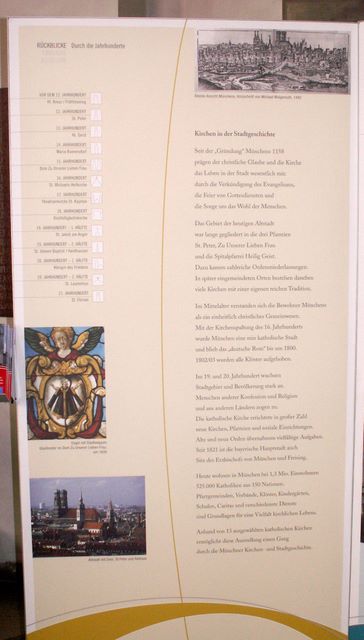 RÜCKBLICKE Durch die Jahrhunderte
VOR DEM 12. JAHRHUNDERT
Hl. Kreuz / Fröttmaning
12. JAHRHUNDERT
St. Peter
13. JAHRHUNDERT
Hl. Geist
14. JAHRHUNDERT
Maria Ramersdorf
15. JAHRHUNDERT
Dom Zu Unserer Lieben Frau
16. JAHRHUNDERT
St. Michaels-Hofkirche
17. JAHRHUNDERT
Theatinerkirche St. Kajetan
18. JAHRHUNDERT
Dreifaltigkeitskirche
19. JAHRHUNDERT – 1. HÄLFTE
St. Jakob am Anger
19. JAHRHUNDERT – 2. HÄLFTE
St. Johann Baptist / Haidhausen
20. JAHRHUNDERT – 1. HÄLFTE
Königin des Friedens
20. JAHRHUNDERT – 2. HÄLFTE
St. Laurentius
21. JAHRHUNDERT
St. Florian
Engel mit Stadtwappen
Glasfenster im Dom Zu Unserer Lieben Frau,
um
Altstadt mit Dom, St. Peter und Rathaus
Älteste Ansicht Münchens, Holzschnitt von Michael Wolgemuth, 1493
Kirchen in der Stadtgeschichte
Seit der „Gründung“ Münchens 1158
prägen der christliche Glaube und die Kirche
das Leben in der Stadt wesentlich mit:
durch die Verkündigung des Evangeliums,
die Feier von Gottesdiensten und
die Sorge um das Wohl der Menschen.
Das Gebiet der heutigen Altstadt
war lange gegliedert in die drei Pfarreien
St. Peter, Zu Unserer Lieben Frau
und die Spitalpfarrei Heilig Geist.
Dazu kamen zahlreiche Ordensniederlassungen.
In später eingemeindeten Orten bestehen daneben
viele Kirchen mit einer eigenen reichen Tradition.
Im Mittelalter verstanden sich die Bewohner Münchens
als ein einheitlich christliches Gemeinwesen.
Mit der Kirchenspaltung des 16. Jahrhunderts
wurde München eine rein katholische Stadt
und blieb das „deutsche Rom“ bis um 1800.
1802/03 wurden alle Klöster aufgehoben.
Im 19. und 20. Jahrhundert wuchsen
Stadtgebiet und Bevölkerung stark an.
Menschen anderer Konfession und Religion
und aus anderen Ländern zogen zu.
Die katholische Kirche errichtete in großer Zahl
neue Kirchen, Pfarreien und soziale Einrichtungen.
Alte und neue Orden übernahmen vielfältige Aufgaben.
Seit 1821 ist die bayerische Hauptstadt auch
Sitz des Erzbischofs von München und Freising.
Heute wohnen in München bei 1,3 Mio. Einwohnern
525.000 Katholiken aus 150 Nationen.
Pfarrgemeinden, Verbände, Klöster, Kindergärten,
Schulen, Caritas und verschiedenste Dienste
sind Grundlagen für eine Vielfalt kirchlichen Lebens.
Anhand von 13 ausgewählten katholischen Kirchen
ermöglicht diese Ausstellung einen Gang
durch die Münchner Kirchen- und Stadtgeschichte.